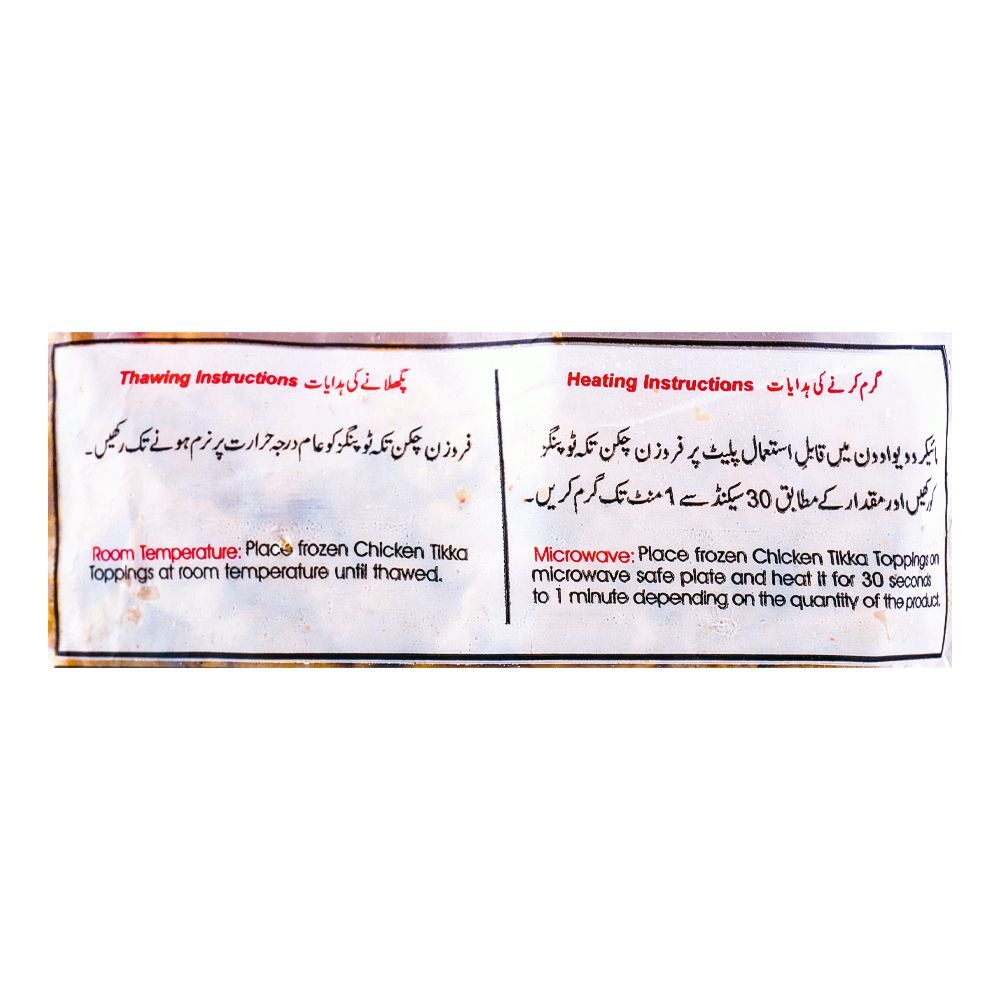 Thawing Instructions پگھلانے کی ہدایات
فروزن چکن تکہ ٹوپنگز کو عام درجہ حرارت پر نرم ہونے تک رکھیں۔
Room Temperature: Place frozen Chicken Tikka
Toppings at room temperature until thawed.
Heating Instructions گرم کرنے کی ہدایات
ائیکروویو اوون میں قابل استعمال پلیٹ پر فروزن چکن تکہ ٹوپنگز
رکھیں اور مقدار کے مطابق 30 سیکنڈ سے 1 منٹ تک گرم کریں۔
Microwave: Place frozen Chicken Tikka Toppings on
microwave safe plate and heat it for 30 seconds
to 1 minute depending on the quantity of the product.